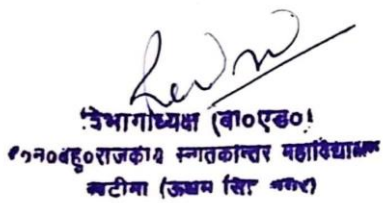 विभागाध्यक्ष (बी०एड०)
हे०न०बहु०राजकीय स्नातकोत्तर महाविद्यालय
खटीमा (ऊधम सिंह नगर)